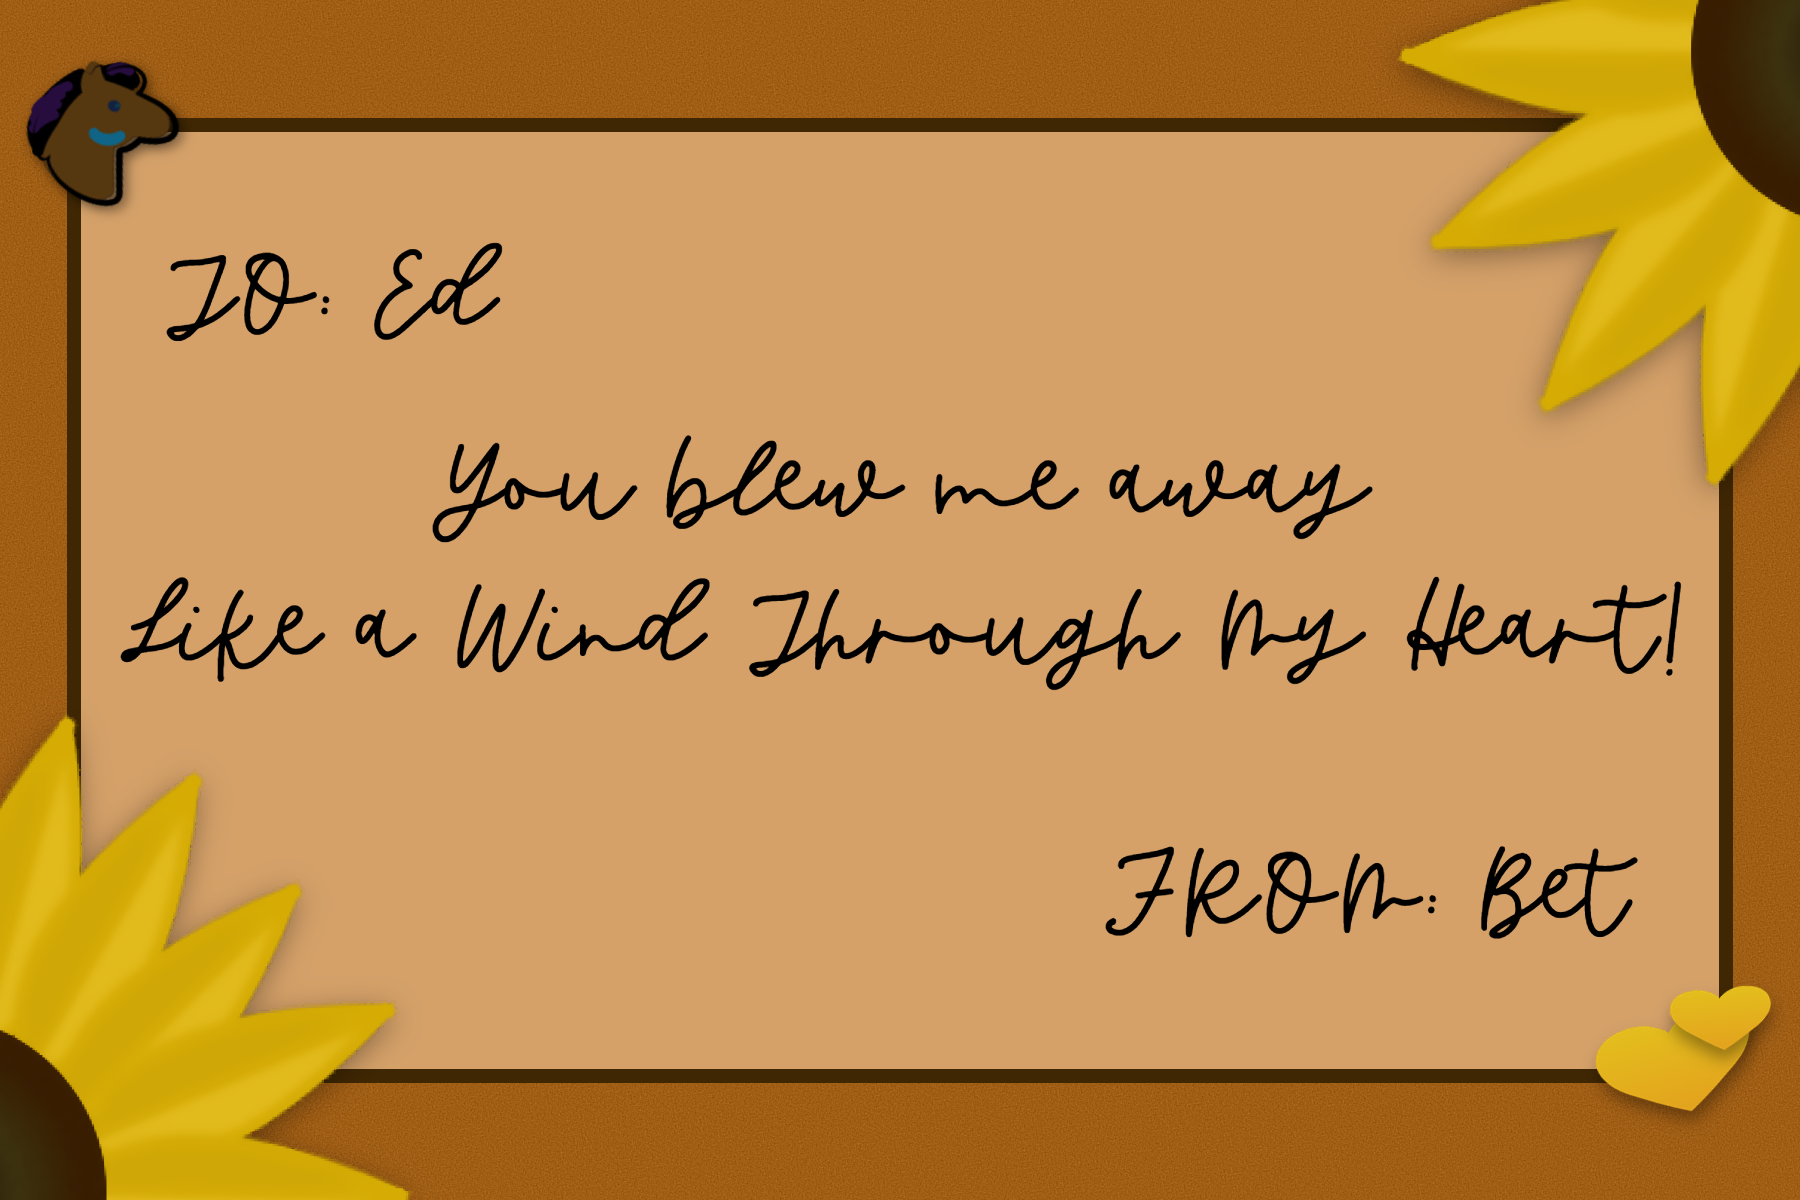 TO: Ed
You blew me away
Like a Wind Through My Heart!
FROM: Bet